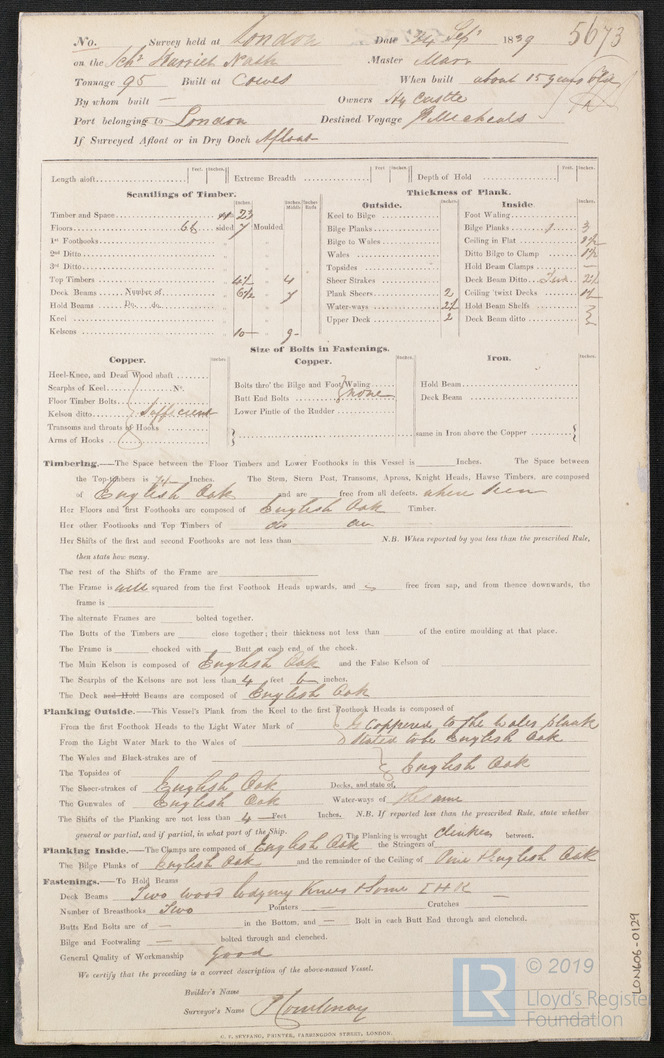 No. Survey held at London Date 24 Sepr 1839 5673
on the Schr Harriet Nash Master Marr
Tonnage 95 Built at Cowes When built about 15 years old
By whom built — Owners Hy Castle
Port belonging to London Destined Voyage St Michaels
If Surveyed Afloat or in Dry Dock Afloat
Length aloft Feet. Inches. Extreme Breadth Feet. Inches. Depth of Hold Feet. Inches.
Scantlings of Timber.
Inches. Inches Middle Inches Ends
Timber and Space 23
Floors sided 7 Moulded
1st Foothooks
2nd Ditto
3rd Ditto
Top Timbers 4½ 4
Deck Beams Number of 6½ 7
Hold Beams Do. do.
Keel
Kelsons 10 9
Thickness of Plank.
Outside. Inches
Keel to Bilge
Bilge Planks
Bilge to Wales
Wales
Topsides
Sheer Strakes
Plank Sheers 2
Water-ways 2½
Upper Deck 2
Inside. Inches.
Foot Waling
Bilge Planks 3
Ceiling in Flat 1½
Ditto Bilge to Clamp 1½
Hold Beam Clamps —
Deck Beam Ditto 2½
Ceiling 'twixt Decks
Hold Beam Shelfs
Deck Beam ditto
Size of Bolts in Fastenings.
Copper. Inches.
Heel-Knee, and Dead Wood abaft
Scarphs of Keel No.
Floor Timber Bolts
Kelson ditto Sufficient
Transoms and throats of Hooks
Arms of Hooks
Copper. Inches.
Bolts thro' the Bilge and Foot Waling
Butt End Bolts none
Lower Pintle of the Rudder
Iron. Inches.
Hold Beam
Deck Beam
same in Iron above the Copper
Timbering.—The Space between the Floor Timbers and Lower Foothooks in this Vessel is Inches. The Space between
the Top-timbers is Inches. The Stem, Stern Post, Transoms, Aprons, Knight Heads, Hawse Timbers, are composed
of English Oak and are free from all defects. where seen
Her Floors and first Foothooks are composed of English Oak Timber.
Her other Foothooks and Top Timbers of do do
Her Shifts of the first and second Foothooks are not less than N.B. When reported by you less than the prescribed Rule,
then state how many.
The rest of the Shifts of the Frame are
The Frame is well squared from the first Foothook Heads upwards, and is free from sap, and from thence downwards, the
frame is
The alternate Frames are bolted together.
The Butts of the Timbers are close together; their thickness not less than of the entire moulding at that place.
The Frame is chocked with Butt at each end of the chock.
The Main Kelson is composed of English Oak and the False Kelson of
The Scarphs of the Kelsons are not less than 4 feet 6 inches.
The Deck and Hold Beams are composed of English Oak
Planking Outside.—This Vessel's Plank from the Keel to the first Foothook Heads is composed of
From the first Foothook Heads to the Light Water Mark of is Coppered to the Wales plank
From the Light Water Mark to the Wales of stated to be English Oak
The Wales and Black-strakes are of English Oak
The Topsides of
The Sheer-strakes of English Oak Decks, and state of,
The Gunwales of English Oak Water-ways of the same
The Shifts of the Planking are not less than 4 Feet Inches. N.B. If reported less than the prescribed Rule, state whether
general or partial, and if partial, in what part of the Ship. The Planking is wrought clinker between.
Planking Inside.—The Clamps are composed of English Oak the Stringers of
The Bilge Planks of English Oak and the remainder of the Ceiling of Pine & English Oak
Fastenings.—To Hold Beams
Deck Beams Two wood lodging Knees & some I H K —
Number of Breasthooks Two Pointers — Crutches
Butts End Bolts are of — in the Bottom, and — Bolt in each Butt End through and clenched.
Bilge and Footwaling — bolted through and clenched.
General Quality of Workmanship Good
We certify that the preceding is a correct description of the above-named Vessel.
Builder's Name
Surveyor's Name P Courtenay
C. F. SEYFANG, PRINTER, FARRINGDON STREET, LONDON.
LON606-0129
LR © 2019
Lloyd's Register
Foundation